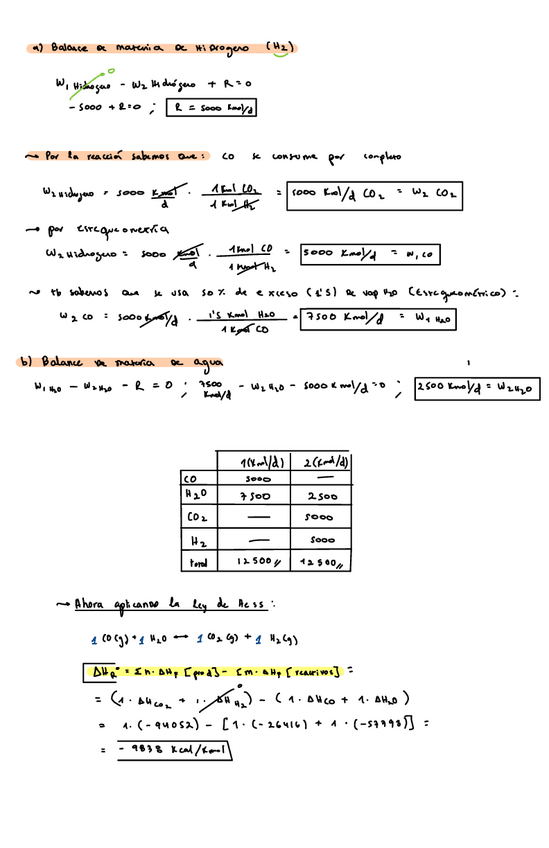 a) Balance de materia de Hidrogeno (H2)
W1 Hidrogeno - W2 Hidrógeno + R = 0
0
- 5000 + R = 0 ; R = 5000 Kmol/d
~ Por la reacción sabemos que: CO se consume por completo
W2 Hidrogeno = 5000 Kmol/d · 1 Kmol CO2 / 1 Kmol H2 = 5000 Kmol/d CO2 = W2 CO2
→ por estequiometría
W2 Hidrogeno = 5000 Kmol/d · 1 Kmol CO / 1 Kmol H2 = 5000 Kmol/d = W1 CO
~ tb sabemos que se usa 50% de exceso (1'5) de vap H2O (Estequiométrico):
W2 CO = 5000 Kmol/d · 1'5 Kmol H2O / 1 Kmol CO = 7500 Kmol/d = W1 H2O
b) Balance de materia de agua
W1 H2O - W2 H2O - R = 0 ; 7500 Kmol/d - W2 H2O - 5000 Kmol/d = 0 ; 2500 Kmol/d = W2 H2O
1 (Kmol/d) 2 (Kmol/d)
CO 5000 —
H2O 7500 2500
CO2 — 5000
H2 — 5000
total 12500 12500
~ Ahora aplicando la Ley de Hess:
1 CO(g) + 1 H2O ↔ 1 CO2(g) + 1 H2(g)
ΔHR° = Σ n · ΔHf [prod] - Σ m · ΔHf [reactivos] =
= (1 · ΔHCO2 + 1 · ΔH H2) - (1 · ΔHCO + 1 · ΔH2O)
0
= 1 · (-94052) - [1 · (-26416) + 1 · (-57798)] =
= - 9838 Kcal/Kmol